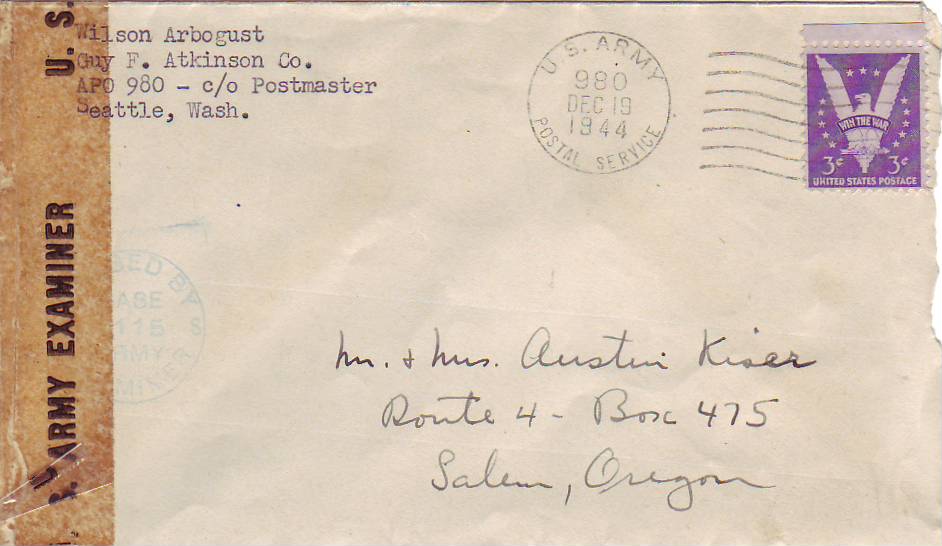 Wilson Arbogust
Guy F. Atkinson Co.
APO 980 - c/o Postmaster
Seattle, Wash.
U.S. ARMY
980
DEC 19
1944
POSTAL SERVICE
WIN THE WAR
3¢ 3¢
UNITED STATES POSTAGE
U. S.
ARMY EXAMINER
BASE
ARMY
Mr. & Mrs. Austin Kiser
Route 4 - Box 475
Salem, Oregon